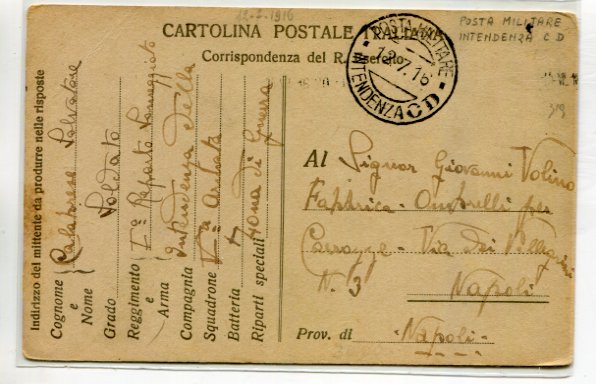 12-7-1916
POSTA MILITARE
INTENDENZA C D
CARTOLINA POSTALE ITALIANA
Corrispondenza del R. Esercito
POSTA MILITARE
12.7.16
INTENDENZA C D
319
Indirizzo del mittente da produrre nelle risposte
Cognome e Nome Calabrese Salvatore
Grado Soldato
Reggimento e Arma Iº Reparto Someggiato
Compagnia Intendenza della
Squadrone Vª Armata
Batteria
Riparti speciali Zona di Guerra
Al Signor Giovanni Volino
Fabbrica - Ombrelli per
Carrozze - Via dei Pellegrini
N. 3
Napoli
Prov. di - Napoli -